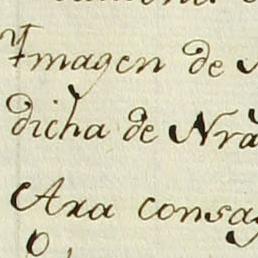 Imagen de
dicha de Nra
Ara consag